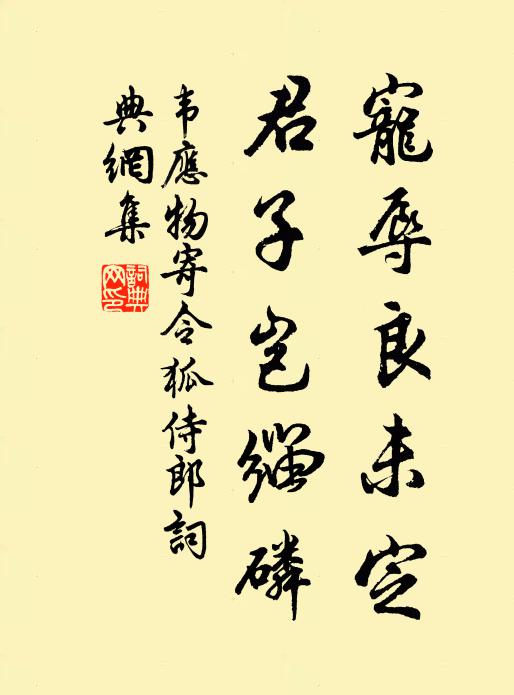 寵辱良未定
君子豈緇磷
韦應物寄令狐侍郎詞
典網集
詞典
网印